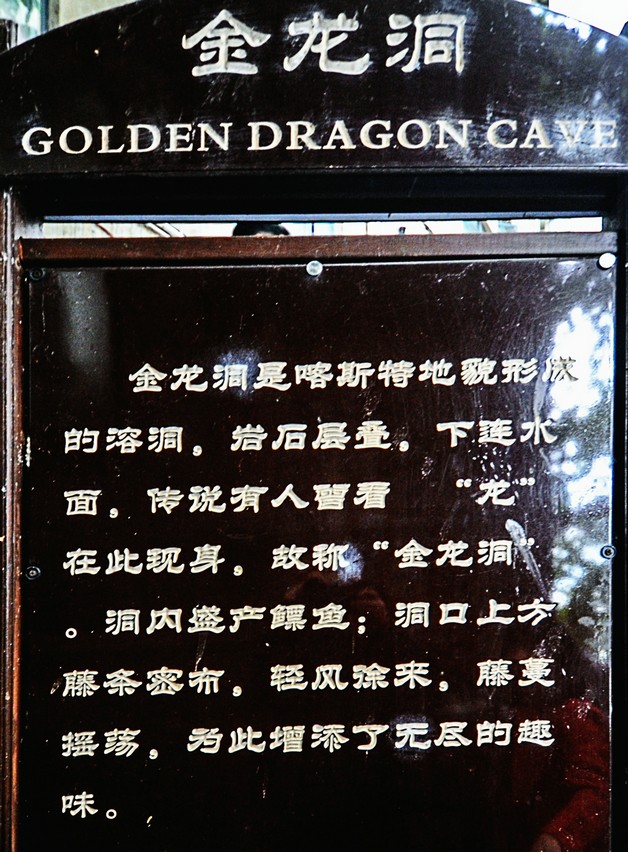 金龙洞
GOLDEN DRAGON CAVE
金龙洞是喀斯特地貌形成
的溶洞，岩石层叠，下连水
面，传说有人曾看 “龙”
在此现身，故称“金龙洞”
。洞内盛产鳔鱼；洞口上方
藤条密布，轻风徐来，藤蔓
摇荡，为此增添了无尽的趣
味。